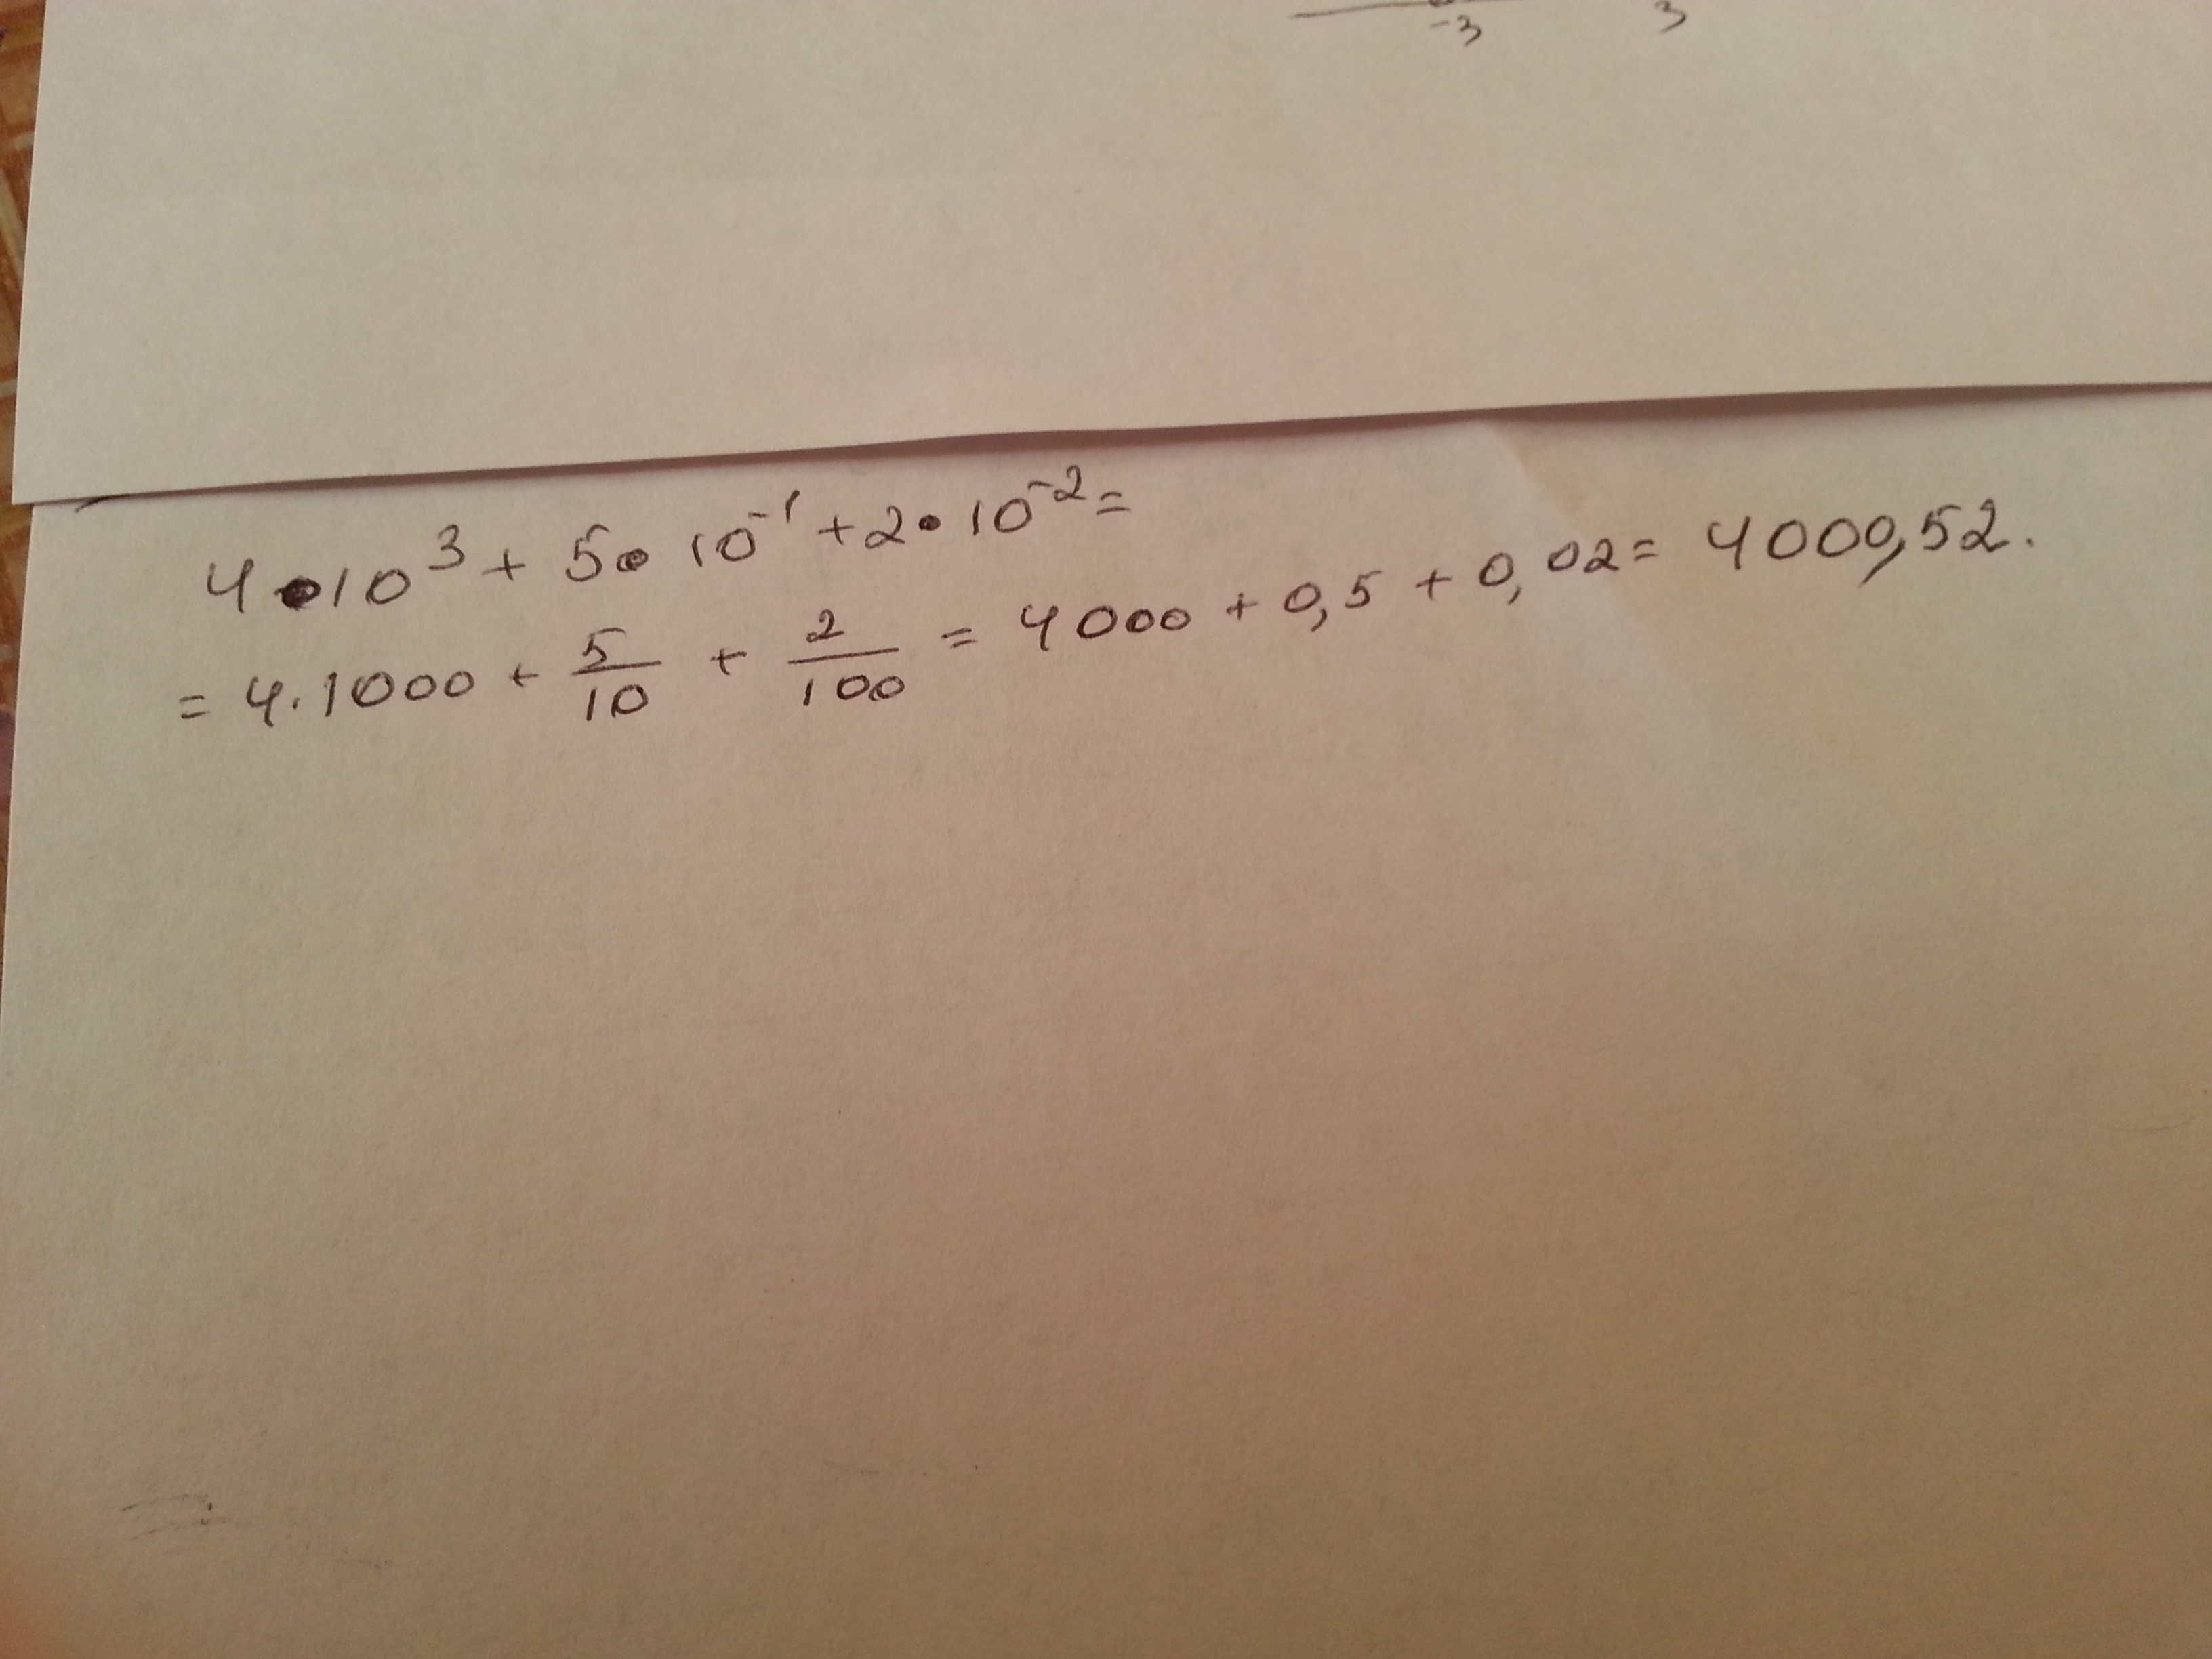 -3 3
4•10³ + 5•10⁻¹ + 2•10⁻² =
= 4·1000 + 5/10 + 2/100 = 4000 + 0,5 + 0,02 = 4000,52.